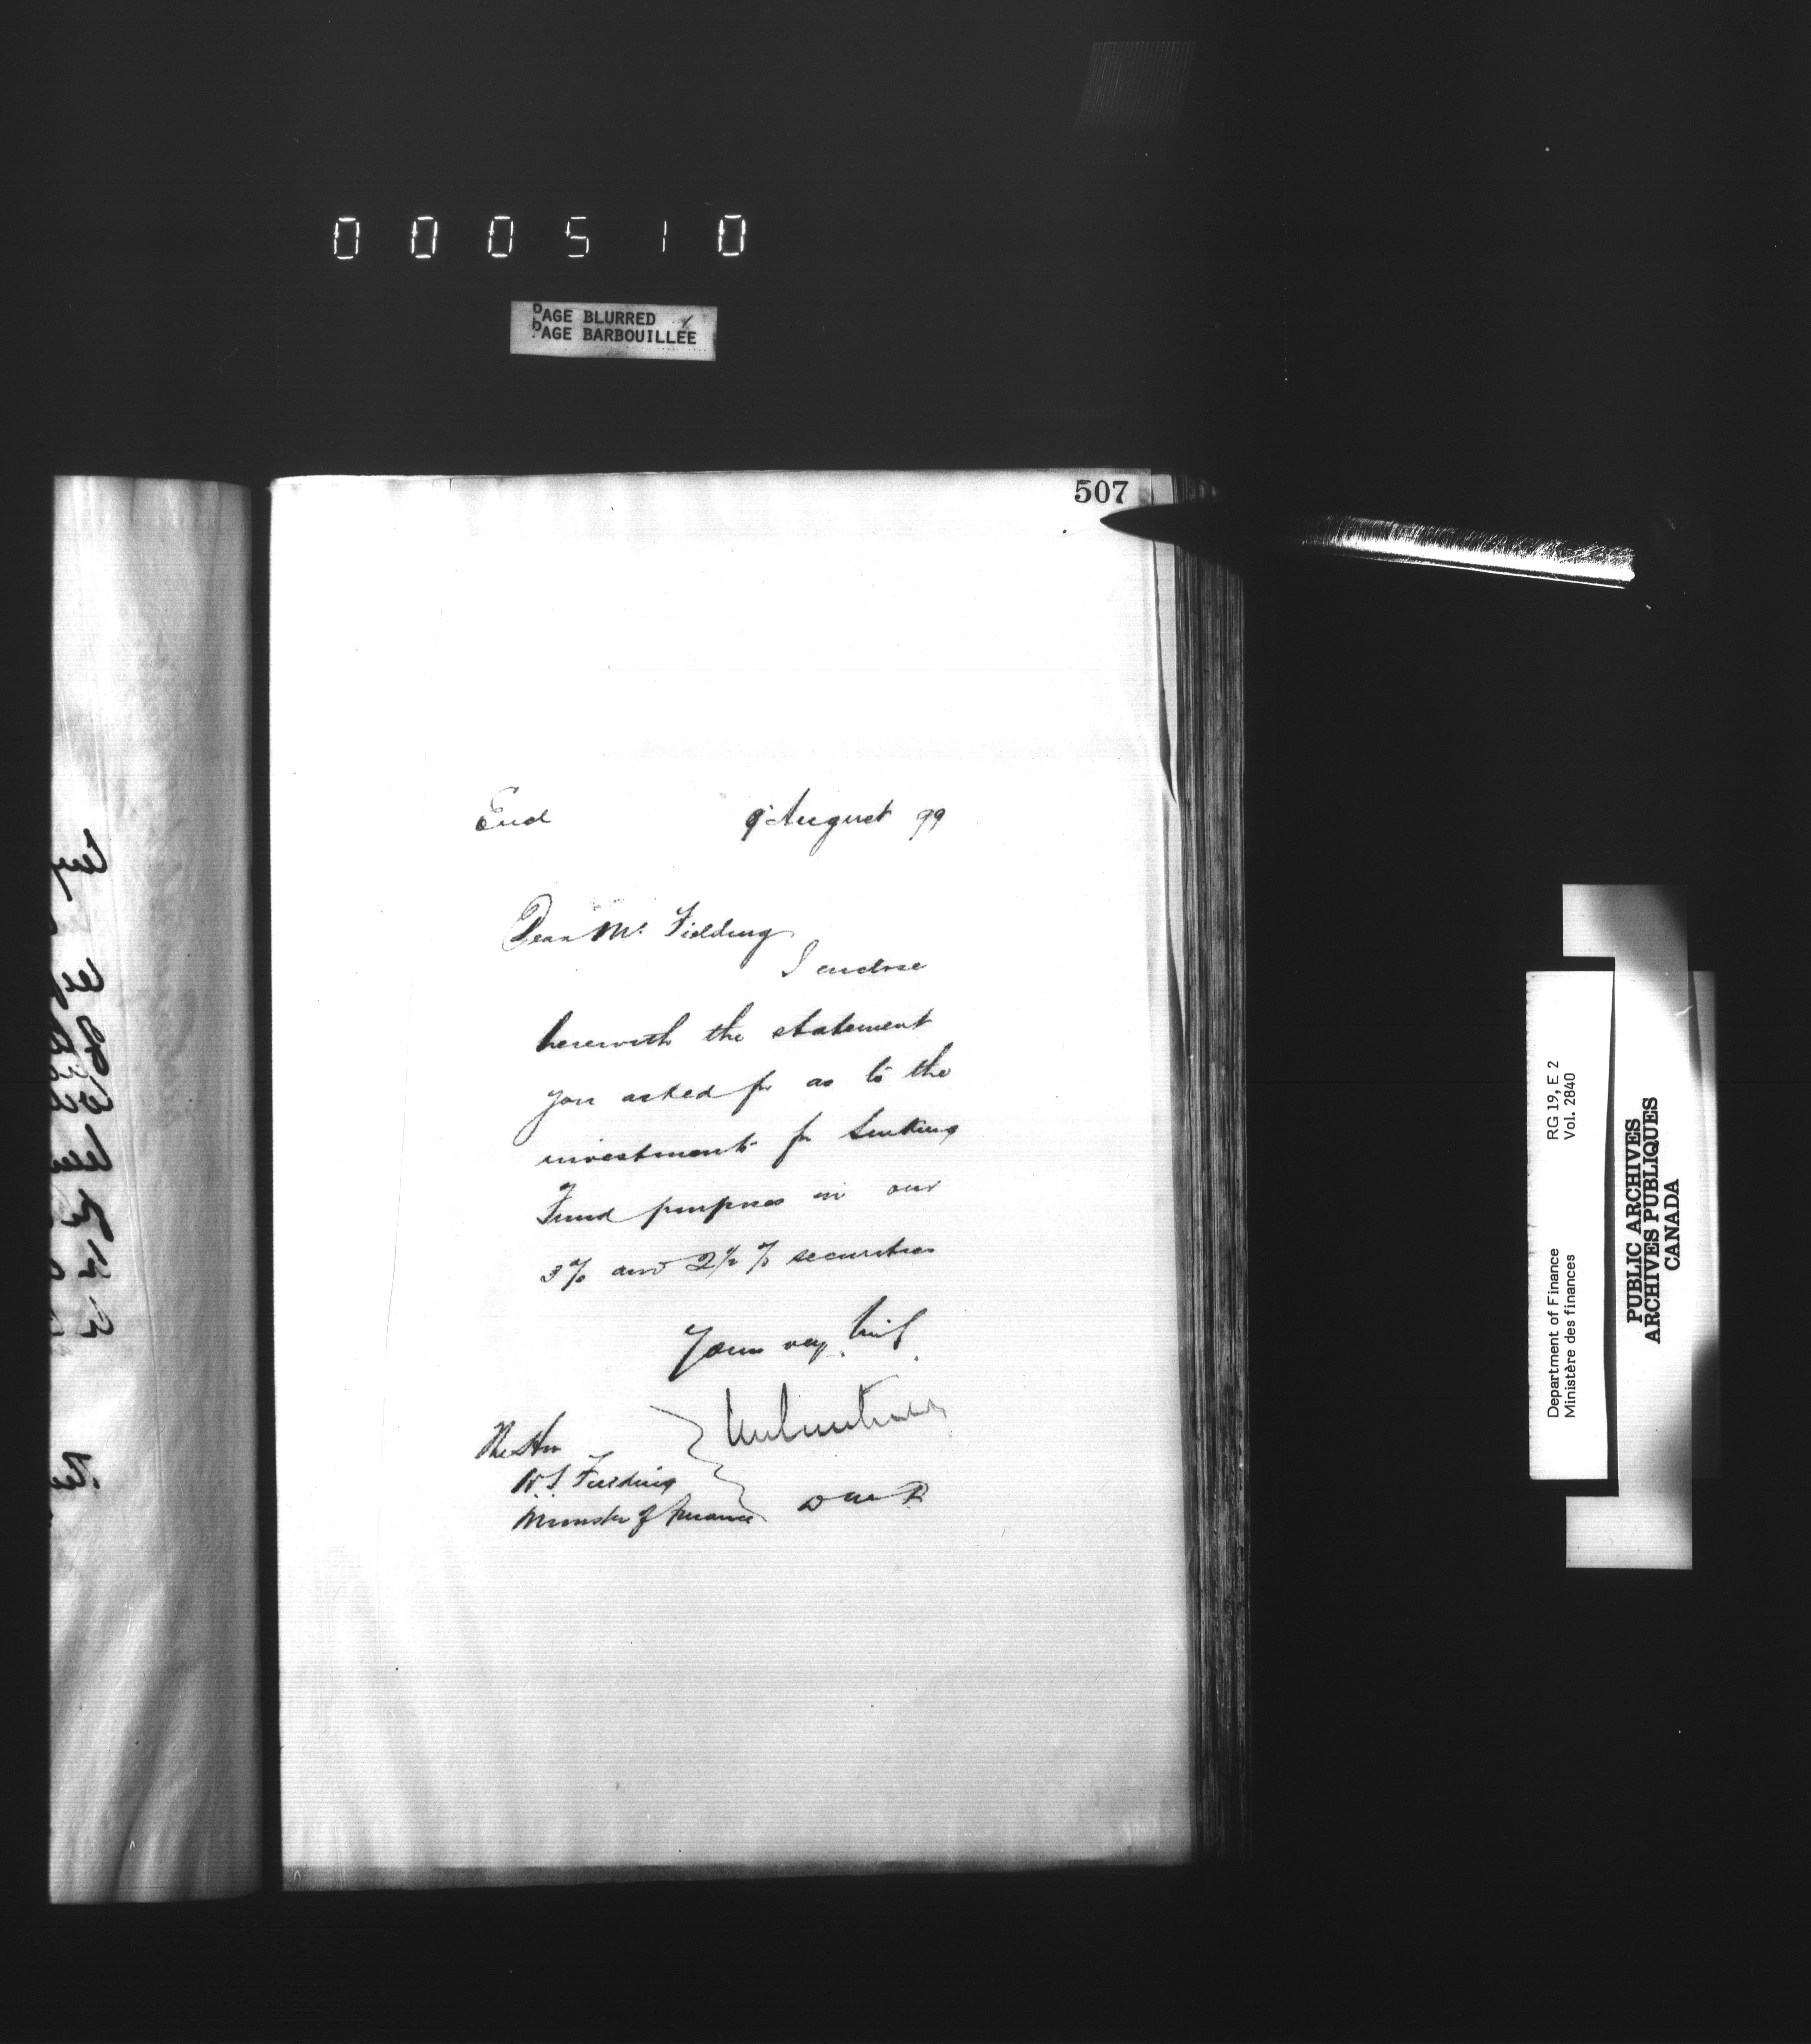 000510
PAGE BLURRED
PAGE BARBOUILLÉE
507
Encl
9 August 99
Dear Mr. Fielding
I enclose
herewith the statement
you asked for as to the
investments for Sinking
Fund purposes in our
3% and 2½% securities
Yours very truly
The Hon
W.S. Fielding
Minister of Finance
RG 19, E 2
Vol. 2840
Department of Finance
Ministère des finances
PUBLIC ARCHIVES
ARCHIVES PUBLIQUES
CANADA